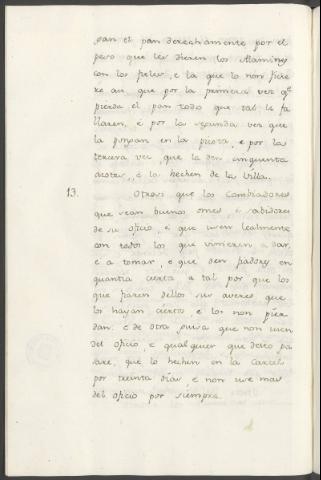 pan el pan derechamente por el
peso que les dieren los Alamines
con los fieles, e la que lo non ficie
re asi, que por la primera vez q.e
pierda el pan todo que tal le fa
llaren, e por la segunda vez que
la pongan en la picota, e por la
tercera vez que la den cinquenta
azotes, e la hechen de la Villa.
13. Otrosi que los Cambiadores
que sean buenos omes, e sabidores
de su oficio, e que usen lealmente
con todos los que vinieren a dar,
e a tomar, e que den fiadores en
quantia cierta a tal por que los
que fiaren dellos sus averes que
los hayan ciertos e los non pier
dan: e de otra guisa que non usen
del oficio, e qualquier que desto pa
sare, que lo hechen en la Carcel
por treinta dias, e non use mas
del oficio por siempre.